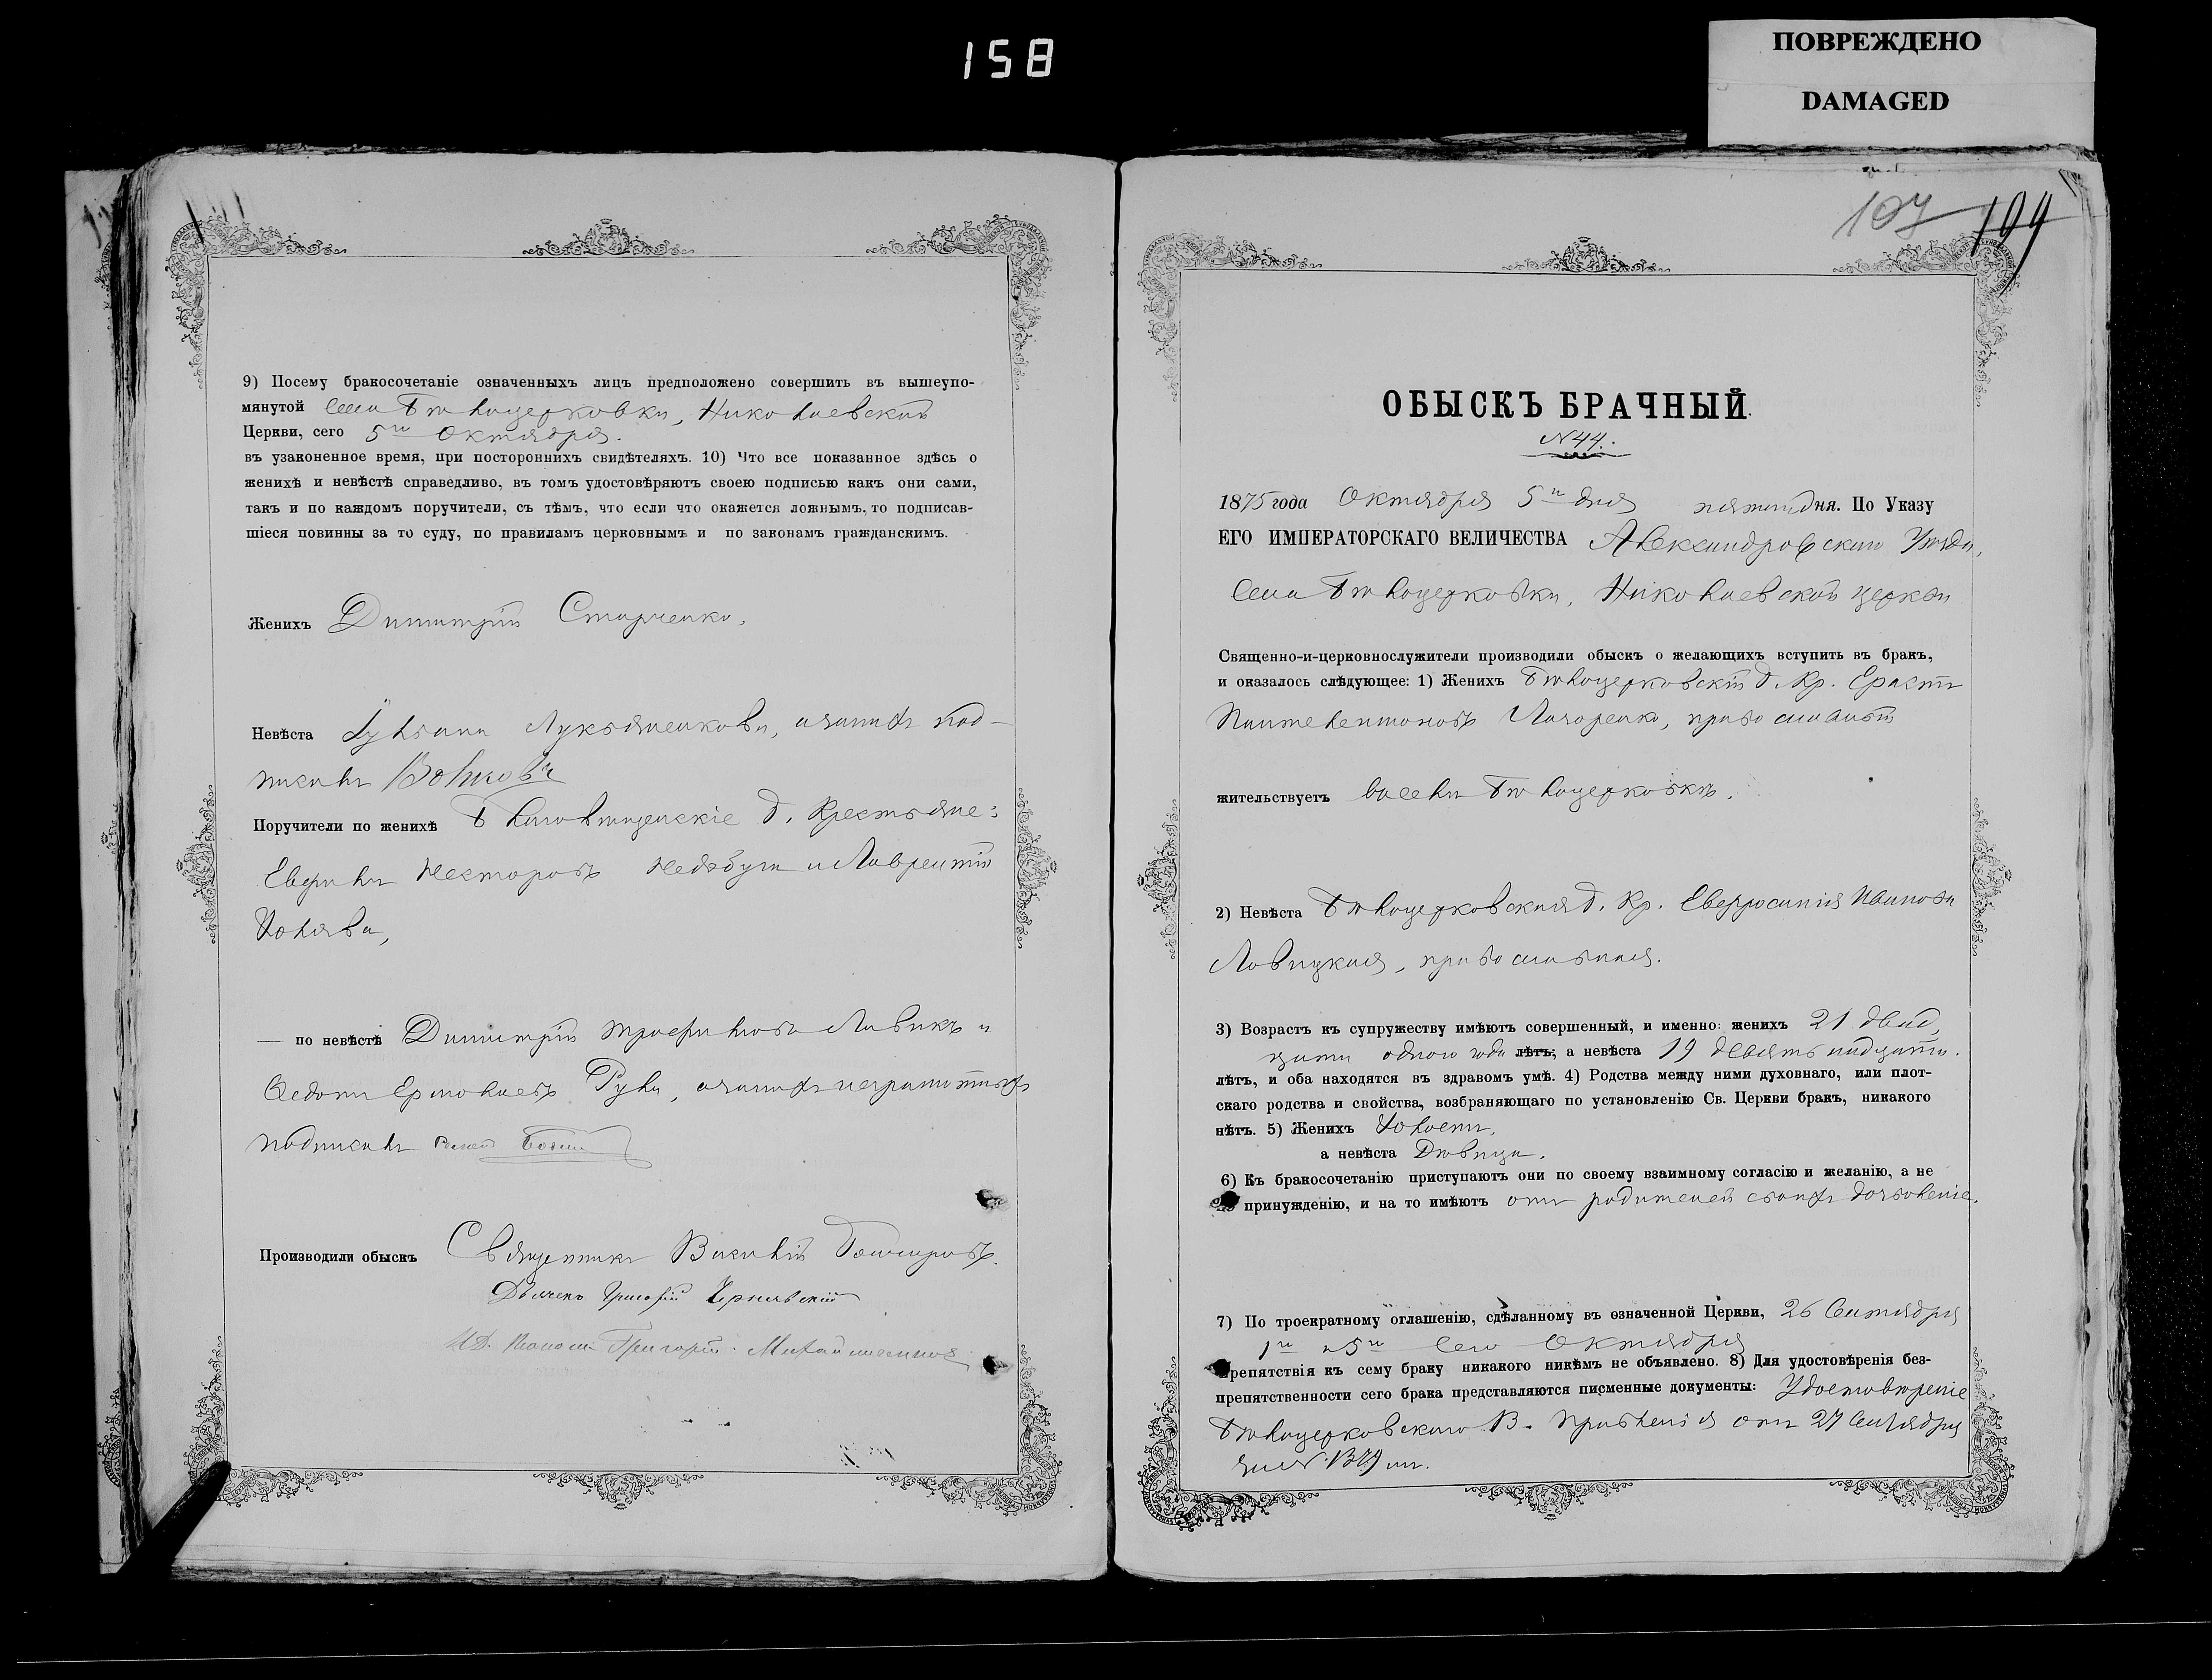 158
ПОВРЕЖДЕНО
DAMAGED
9) Посему бракосочетаніе означенныхъ лицъ предположено совершить въ вышеупо-
мянутой села Бѣлоцерковки, Николаевской
Церкви, сего 5го Октября.
въ узаконенное время, при постороннихъ свидѣтеляхъ. 10) Что все показанное здѣсь о
женихѣ и невѣстѣ справедливо, въ томъ удостовѣряютъ своею подписью какъ они сами,
такъ и по каждомъ поручители, съ тѣмъ, что если что окажется ложнымъ, то подписав-
шіеся повинны за то суду, по правиламъ церковнымъ и по законамъ гражданскимъ.
Женихъ Димитрій Старченко,
Невѣста Лукьяненкова, а за нихъ под-
писалъ Волковъ
Поручители по женихѣ Благовѣщенскіе д. Крестьяне:
Несторовъ и Лаврентій
— по невѣстѣ Димитрій Трофимовъ и
Федотъ Ермолаевъ Рула, а за нихъ неграмотныхъ
подписалъ
Производили обыскъ Священникъ Василій
Дьячекъ Григорій Чернявскій
И.Д. Григорій
107 109
ОБЫСКЪ БРАЧНЫЙ.
N 44.
1875 года Октября 5го дня пятого дня. По Указу
ЕГО ИМПЕРАТОРСКАГО ВЕЛИЧЕСТВА Александровскаго Уѣзда,
села Бѣлоцерковки, Николаевской церкви
Священно-и-церковнослужители производили обыскъ о желающихъ вступить въ бракъ,
и оказалось слѣдующее: 1) Женихъ Бѣлоцерковскій д. Кр. Ерастъ
Пантелеимоновъ православный
жительствуетъ въ селѣ Бѣлоцерковкѣ.
2) Невѣста Бѣлоцерковская д. Кр. Евфросинія Иванова
Ловицкая, православная.
3) Возрастъ къ супружеству имѣютъ совершенный, и именно: женихъ 21 двад-
цати одного года лѣтъ; а невѣста 19 девятнадцати.
лѣтъ, и оба находятся въ здравомъ умѣ. 4) Родства между ними духовнаго, или плот-
скаго родства и свойства, возбраняющаго по установленію Св. Церкви бракъ, никакого
нѣтъ. 5) Женихъ Холостъ,
а невѣста Дѣвица.
6) Къ бракосочетанію приступаютъ они по своему взаимному согласію и желанію, а не
принужденію, и на то имѣютъ отъ родителей своихъ дозволеніе.
7) По троекратному оглашенію, сдѣланному въ означенной Церкви, 26 Сентября
1го и 5го сего Октября
препятствія къ сему браку никакого никѣмъ не объявлено. 8) Для удостовѣренія без-
препятственности сего брака представляются писменные документы: Удостовѣреніе
Бѣлоцерковскаго В. Правленія отъ 27 Сентября
за N.